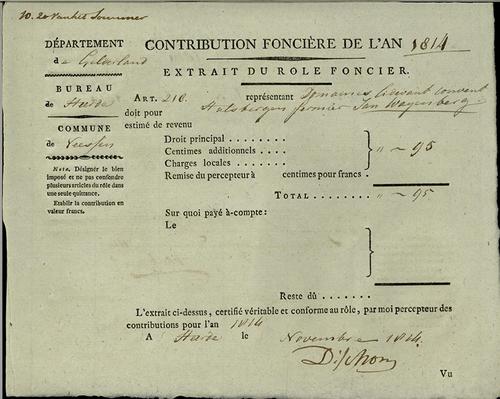 DÉPARTEMENT
de Gelderland
BUREAU
de
COMMUNE
de
Nota. Désigner le bien
imposé et ne pas confondre
plusieurs articles du rôle dans
une seule quittance.
Etablir la contribution en
valeur francs.
CONTRIBUTION FONCIÈRE DE L'AN 1814
EXTRAIT DU ROLE FONCIER.
ART. 210. représentant
doit pour fermier Jan Wagenberg
estimé de revenu
Droit principal . . . . . . . .
Centimes additionnels . . . . " ~ 95
Charges locales . . . . . . .
Remise du percepteur à centimes pour francs .
TOTAL . . . . . . . . " ~ 95
Sur quoi payé à-compte :
Le
Reste dû . . . . . . .
L'extrait ci-dessus, certifié véritable et conforme au rôle, par moi percepteur des
contributions pour l'an 1814
A le Novembre 1814.
Vu